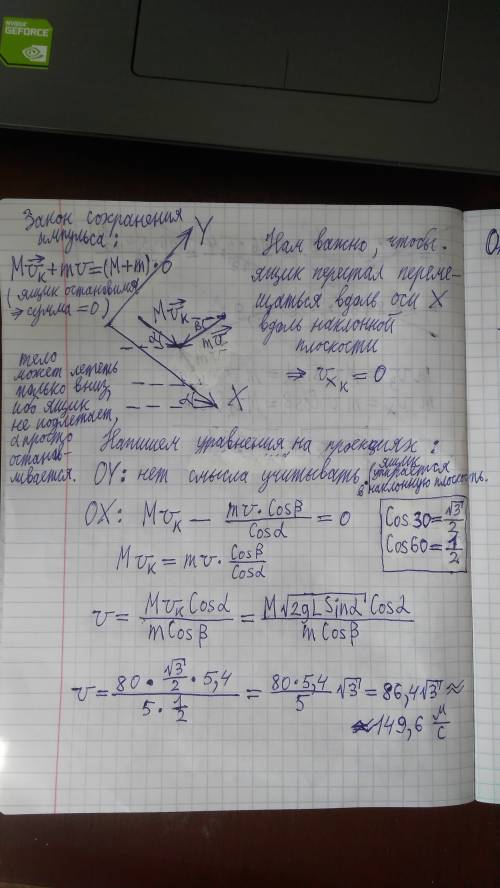 NVIDIA
GEFORCE
Закон сохранения
импульса:
Mv⃗ₖ+mv=(M+m)·0
(ящик остановился
⇒ сумма =0)
Y
Mv⃗ₖ
α
β
mv⃗
α
X
тело
может лететь
только вниз,
ибо ящик
не подлетает,
а просто
останав-
ливается.
Нам важно, чтобы
ящик перестал переме-
щаться вдоль оси X
вдоль наклонной
плоскости
⇒ vₓₖ = 0
Напишем уравнения на проекциях:
OY: нет смысла учитывать (ящик упирается
в наклонную плоскость.
OX: Mvₖ − mv·Cosβ/Cosα = 0
Mvₖ = mv · Cosβ/Cosα
Cos30=√3/2
Cos60=1/2
v = MvₖCosα/mCosβ = M√2gLSinα Cosα/mCosβ
v = 80·√3/2·5,4/5·1/2 = 80·5,4/5 √3 = 86,4√3 ≈
≈149,6 м/с